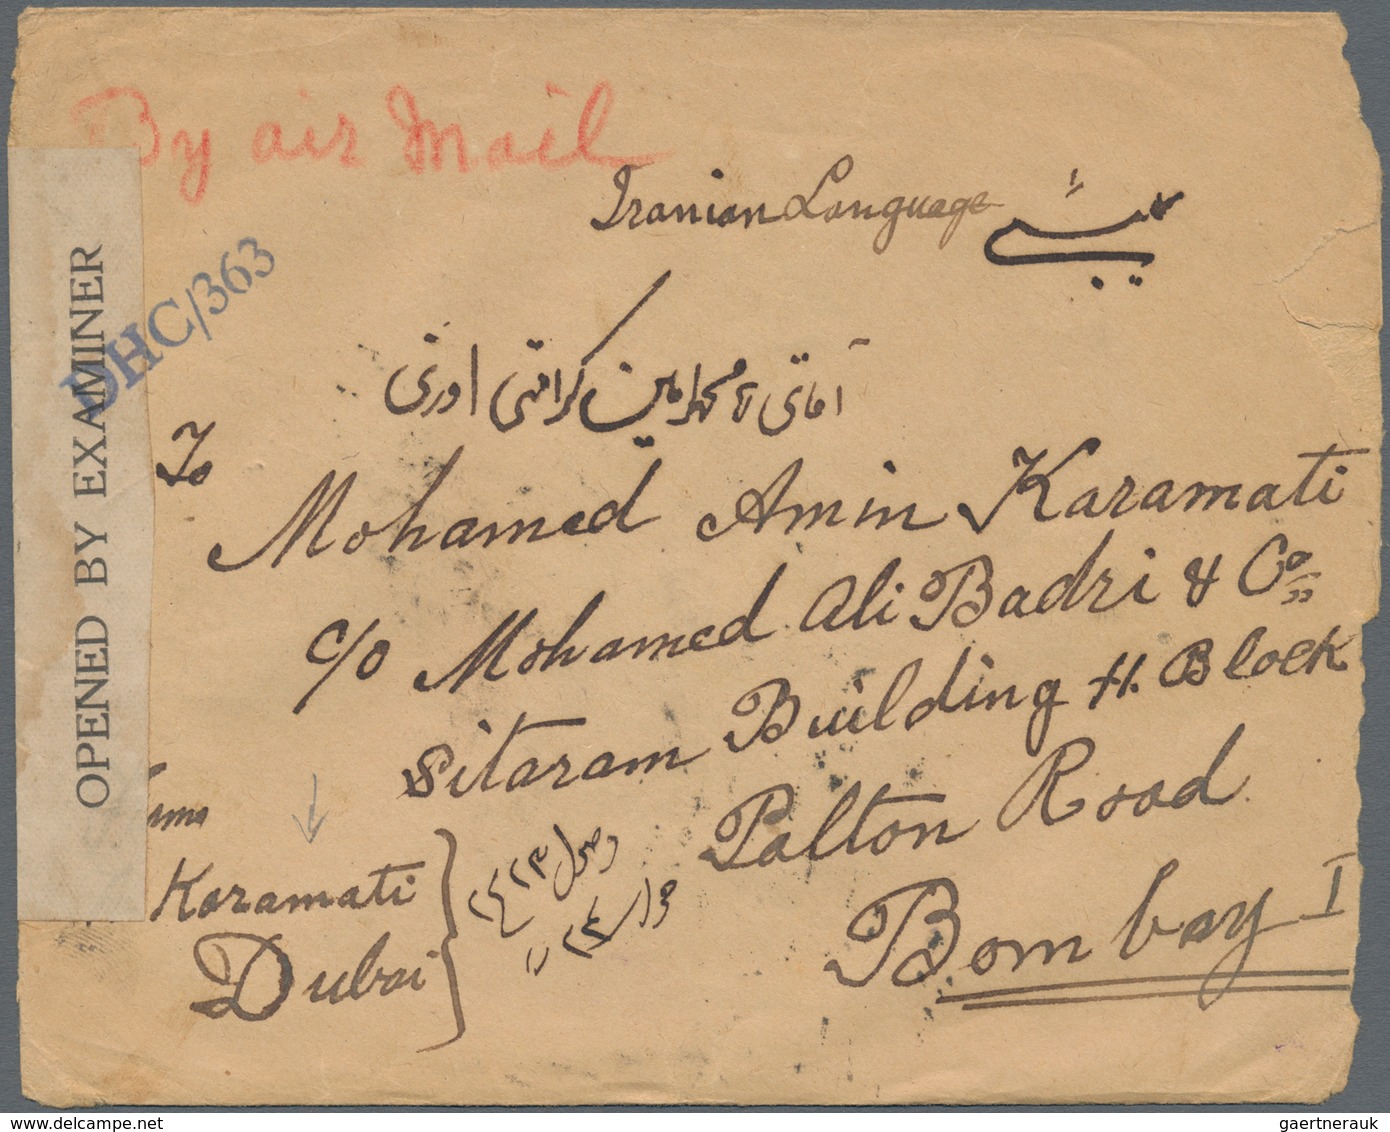 By air Mail
Iranian Language بمبئی
DHC/363
OPENED BY EXAMINER
آقای محمد امین کرامتی اوزی
To
Mohamed Amin Karamati
c/o Mohamed Ali Badri & Co
Sitaram Building H. Block
Palton Road
Bombay I
Karamati
Dubai
delcampe.net
gaertnerauk